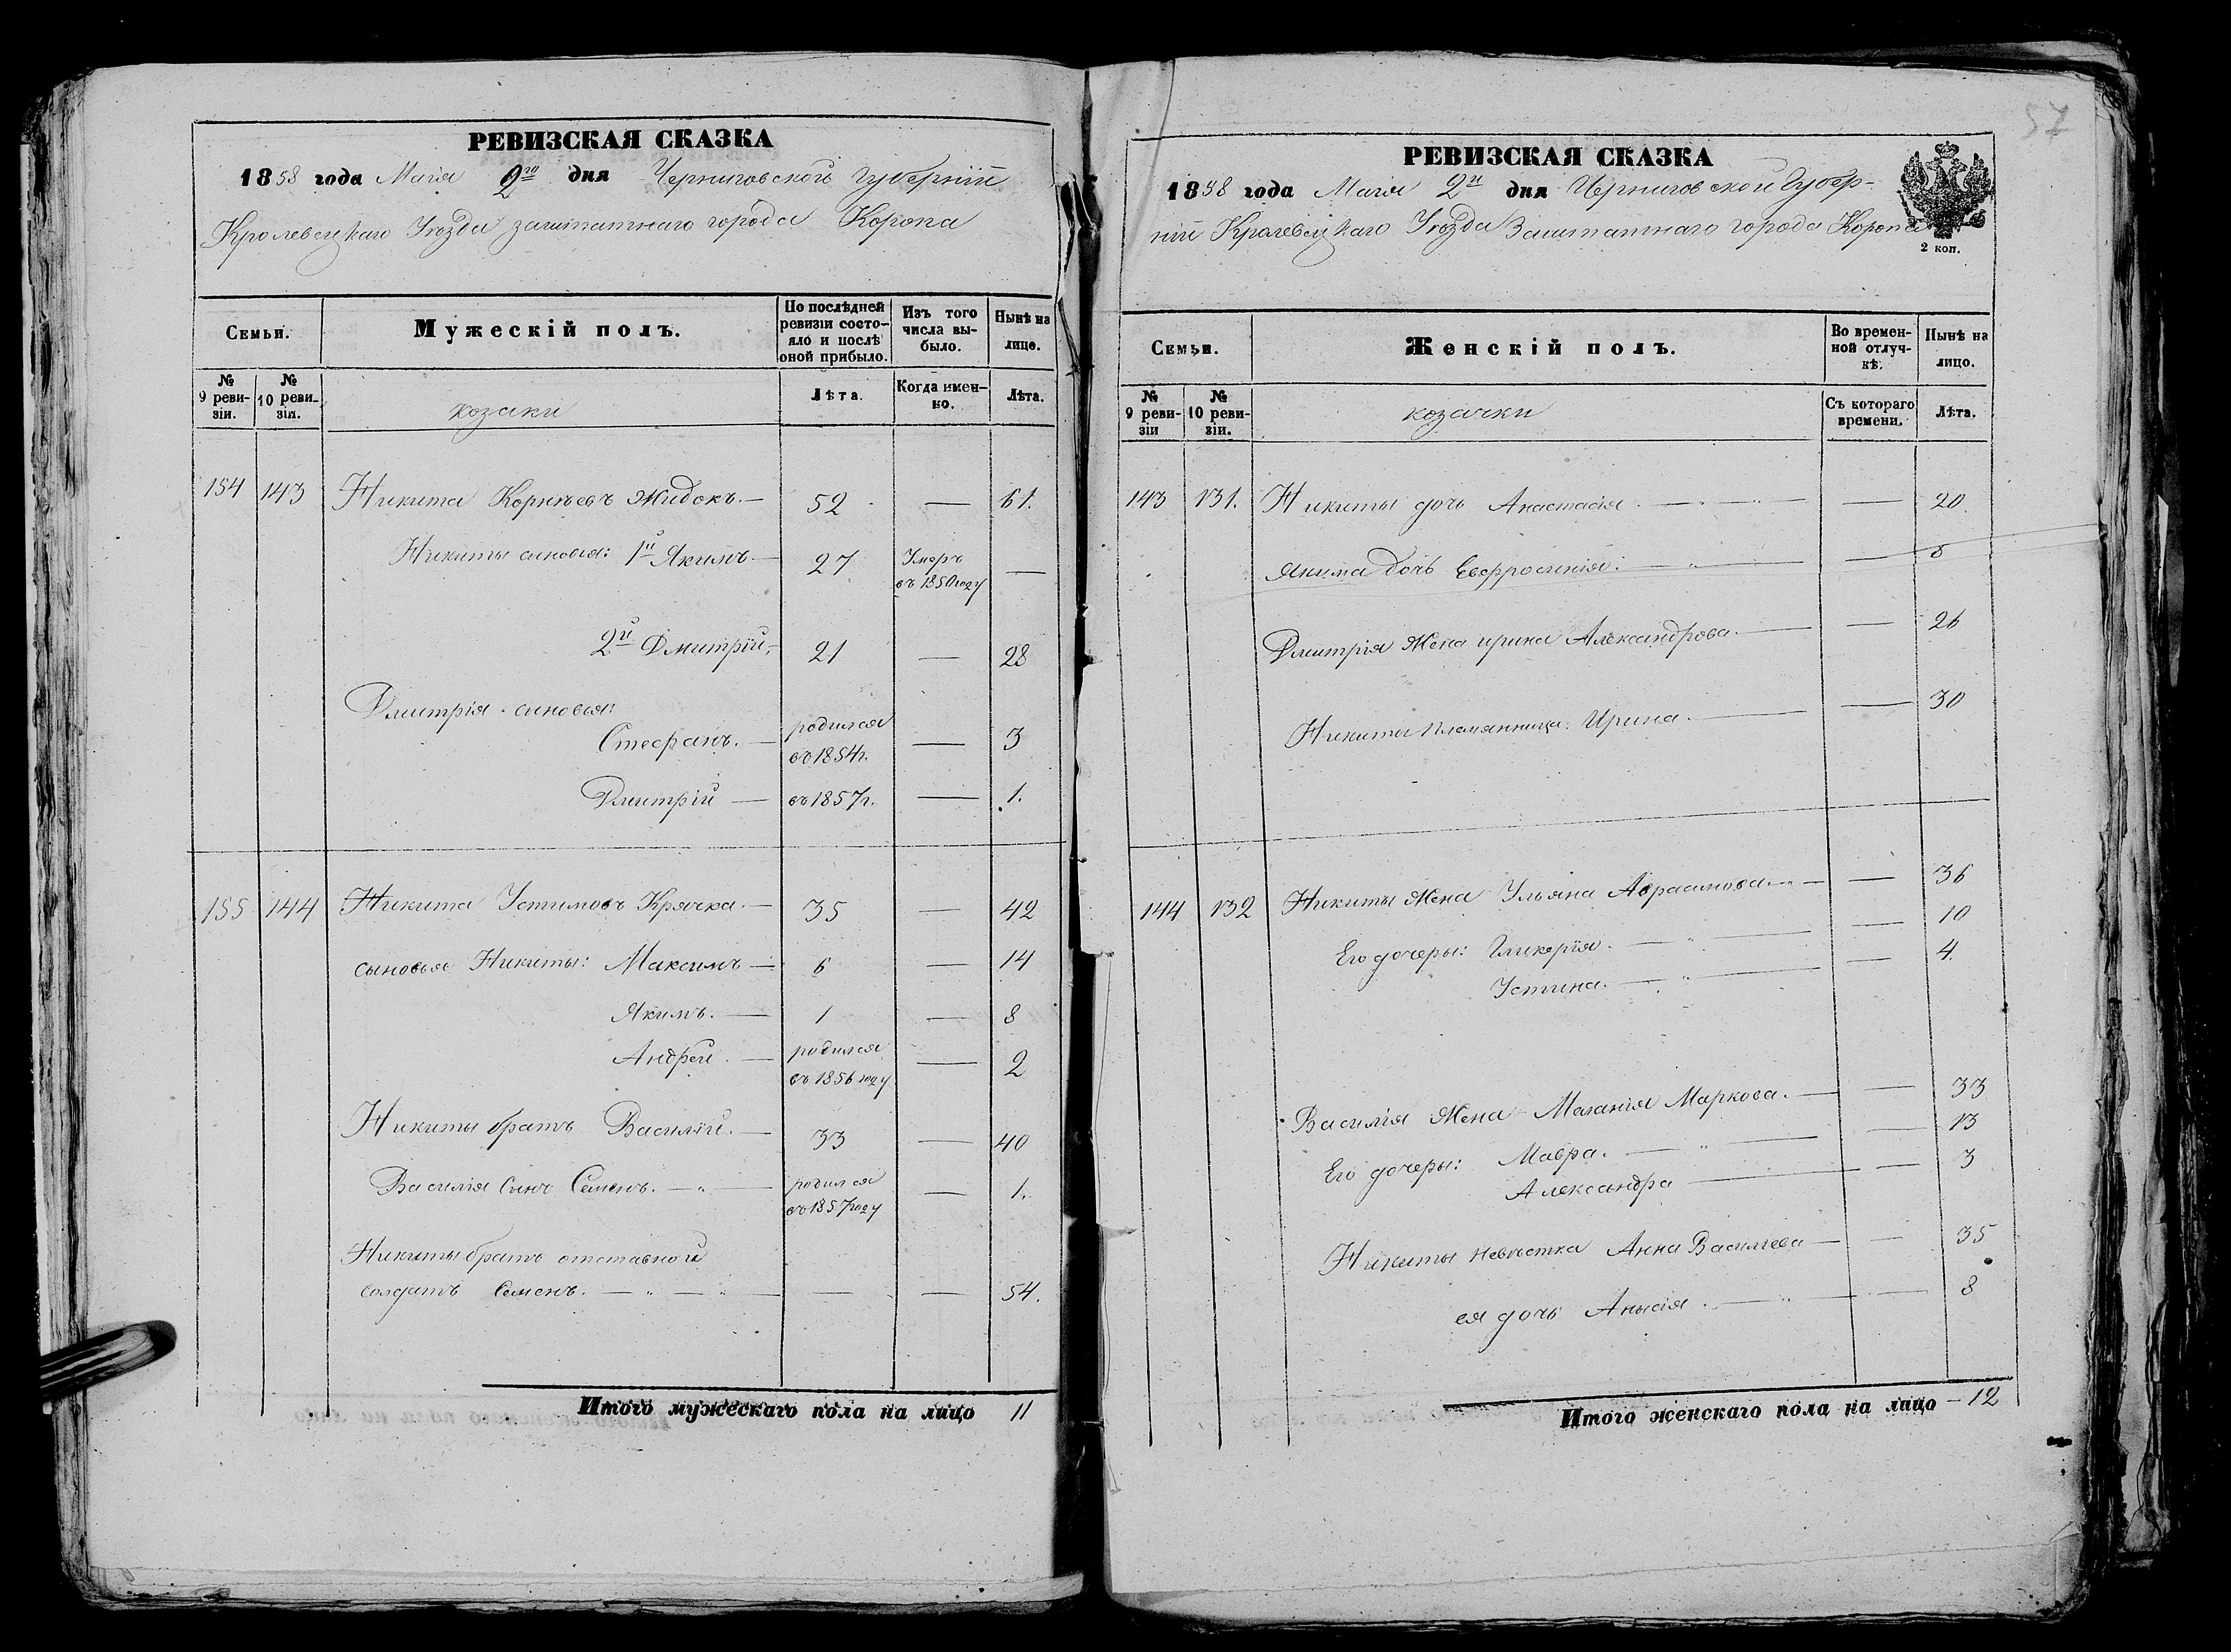 РЕВИЗСКАЯ СКАЗКА
1858 года Маія 2го дня Черниговской Губерніи
Кролевецкаго Уѣзда заштатнаго города Коропа
Семьи.
Мужескій полъ.
По послѣдней ревизіи состояло и послѣ оной прибыло.
Изъ того числа выбыло.
Нынѣ на лице.
№ 9 ревизіи.
№ 10 ревизіи.
козаки
Лѣта.
Когда именно.
Лѣта.
154 143 Никита Корнѣевъ Жидокъ. — 52 — 61.
Никиты сыновья: 1й Якимъ. — 27 Умеръ въ 1850 году —
2й Дмитрій, 21 — 28
Дмитрія сыновья:
Стефанъ. — родился въ 1854г. — 3
Дмитрій — въ 1857г. — 1.
155 144 Никита Устимовъ Крячка. — 35 — 42
сыновья Никиты: Максимъ — 6 — 14
Якимъ. — 1 — 8
Андрей. — родился въ 1856 году — 2
Никиты братъ Василій. — 33 — 40
Василія сынъ Семенъ. — „ — родился въ 1857 году — 1.
Никиты братъ отставной
солдатъ Семенъ. — „ — „ — — — 54.
Итого мужескаго пола на лицо 11
57
РЕВИЗСКАЯ СКАЗКА
1858 года Маія 2й дня Черниговской Губер-
ніи Кролевецкаго Уѣзда Заштатнаго города Коропа
2 коп.
Семьи.
Женскій полъ.
Во временной отлучкѣ.
Нынѣ на лицо.
№ 9 ревизіи
№ 10 ревизіи.
козачки
Съ котораго времени.
Лѣта.
143 131. Никиты дочь Анастасія. — „ — „ — — 20.
Якима дочь Евфросинія. — „ — — 8
Дмитрія Жена ирина Александрова. — — 26
Никиты племянница: Ирина. — — 30
144 132 Никиты Жена Ульяна Абрасимова — „ — — 36
Его дочеры: Гликерія. — „ — — 10
Устина. — „ — — 4.
Василія Жена Маланія Маркова. — — 33
Его дочеры: Мавра. — „ — — 13
Александра — — 3
Никиты невѣстка Анна Василіева — — 35
ея дочь Анисія. — „ — — 8
Итого женскаго пола на лицо — 12